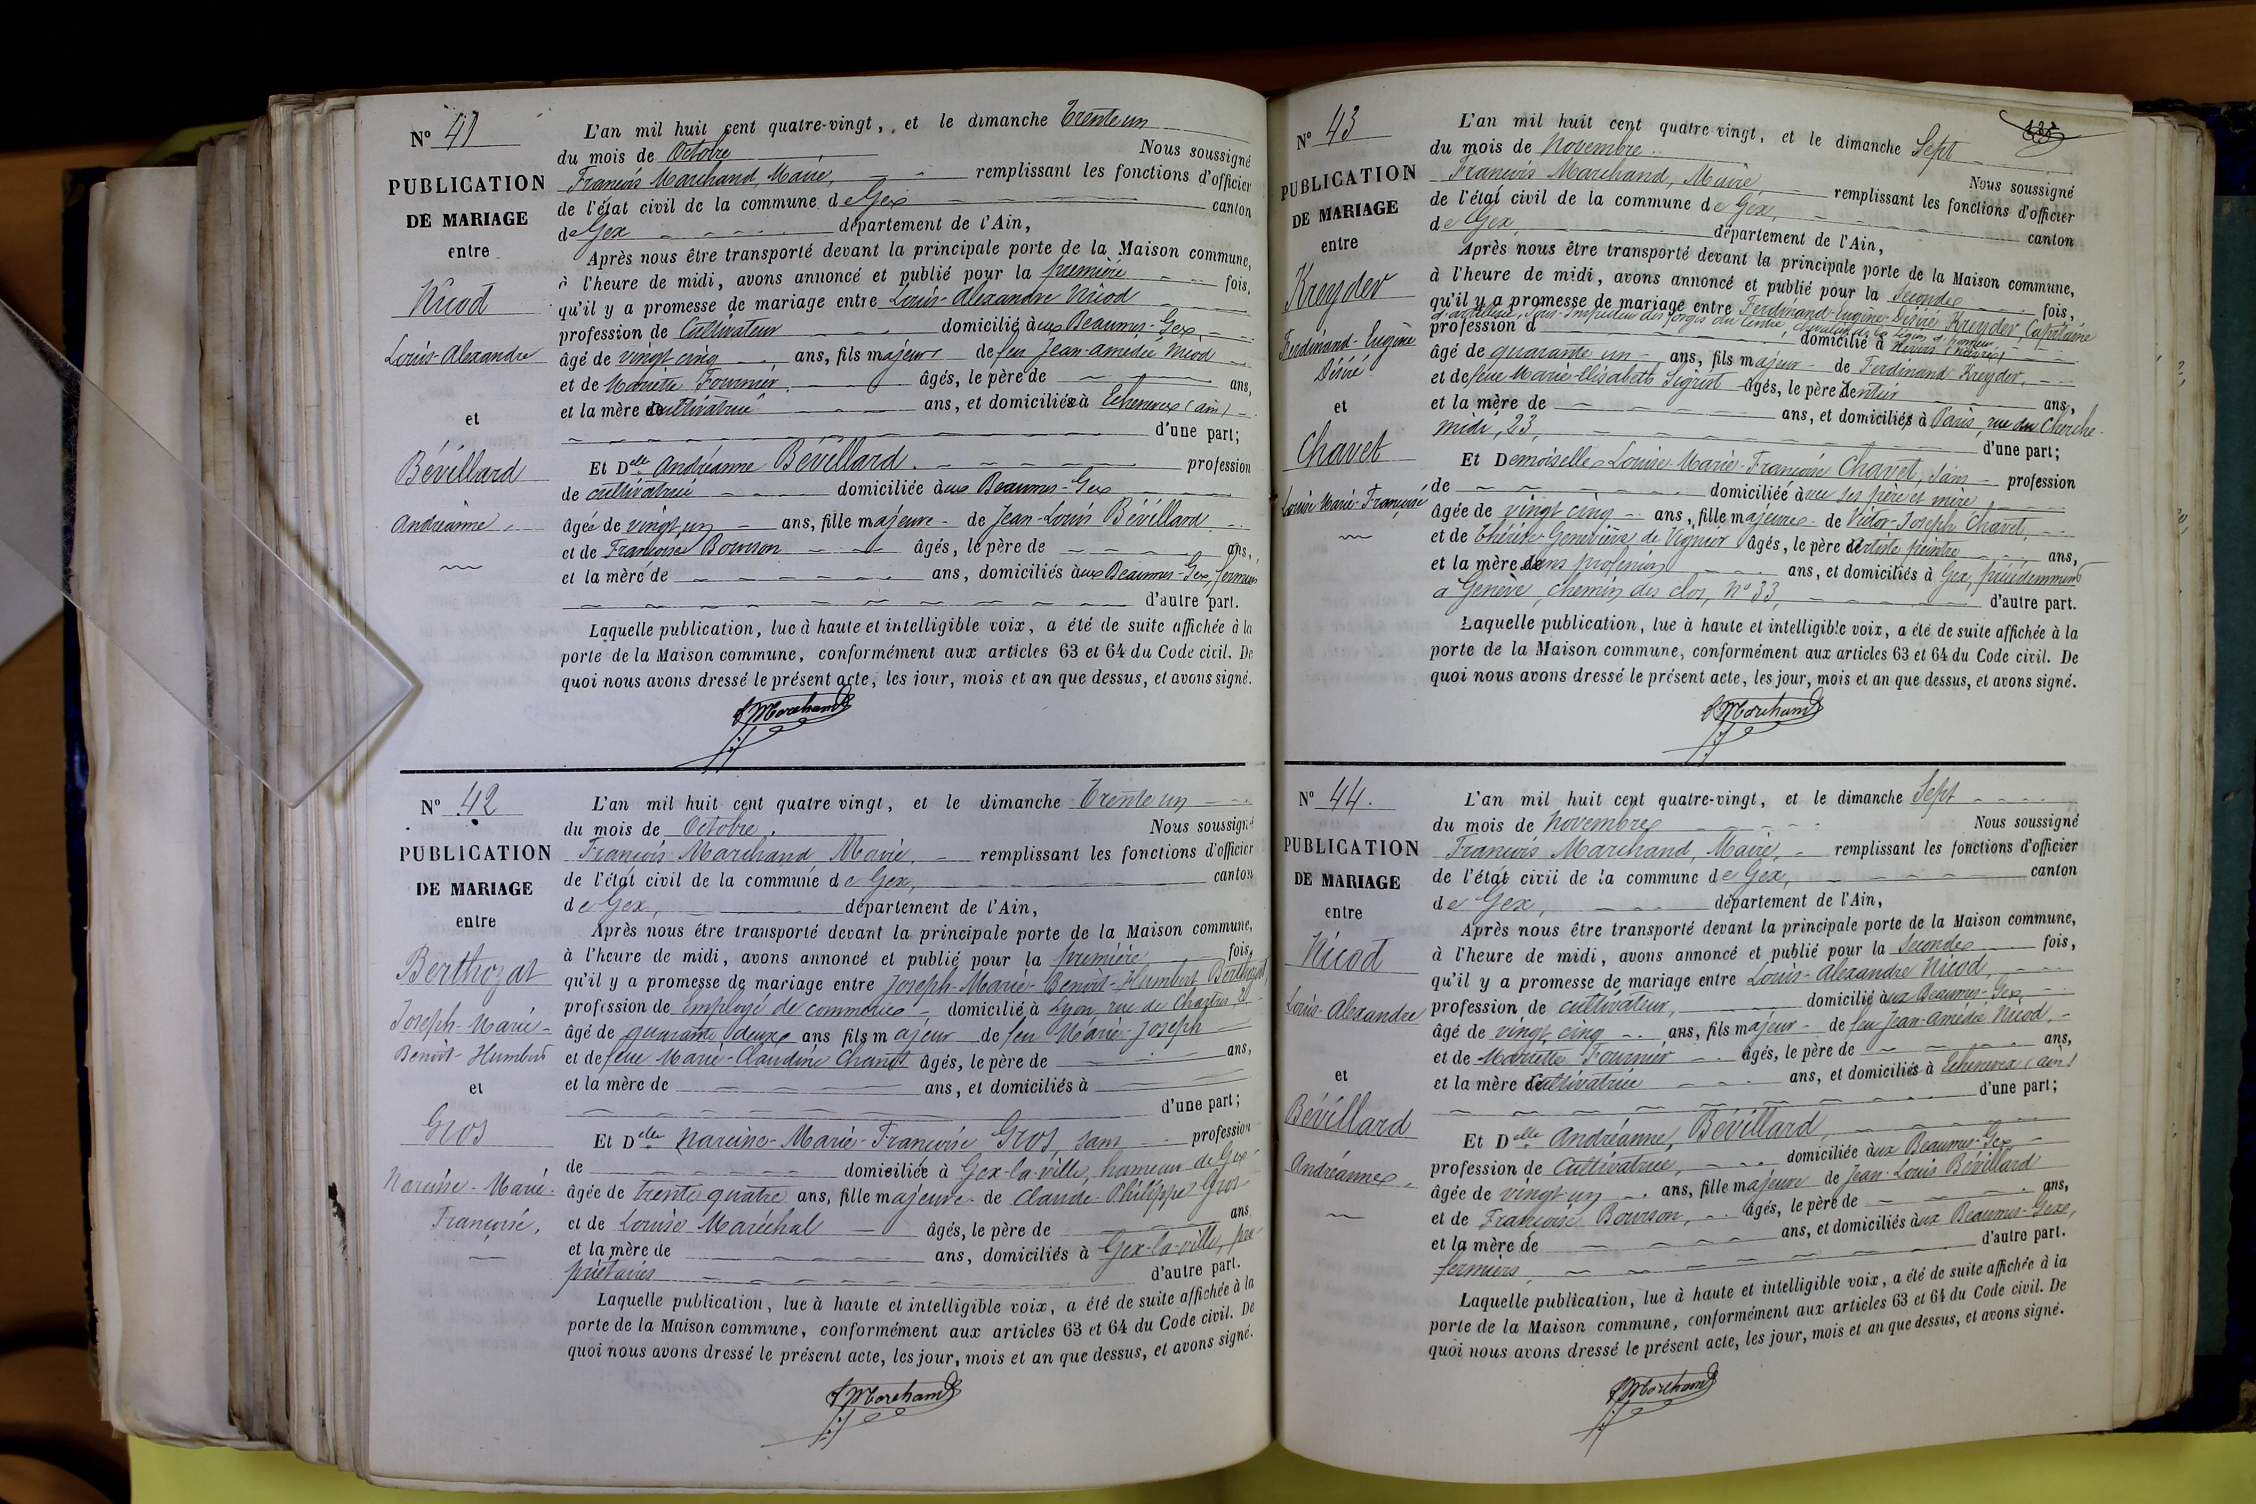 N° 41
PUBLICATION
DE MARIAGE
entre
Nicod
Louis-Alexandre
et
Bévillard
Andréanne
L'an mil huit cent quatre-vingt, et le dimanche Trente un
du mois de Octobre Nous soussigné
François Marchand, Maire, remplissant les fonctions d'officier
de l'état civil de la commune de Gex canton
de Gex département de l'Ain,
Après nous être transporté devant la principale porte de la Maison commune,
à l'heure de midi, avons annoncé et publié pour la première fois,
qu'il y a promesse de mariage entre Louis-Alexandre Nicod
profession de Cultivateur domicilié aux Beaumes-Gex
âgé de vingt cinq ans, fils majeur de feu Jean-Amédée Nicod
et de Mariette Fournier âgés, le père de ans,
et la mère cultivatrice ans, et domiciliés à Echenevex (ain)
d'une part;
Et Delle Andréanne Bévillard profession
de cultivatrice domiciliée aux Beaumes-Gex
âgée de vingt un ans, fille majeure de Jean-Louis Bévillard
et de Françoise Bourson âgés, le père de ans,
et la mère de ans, domiciliés aux Beaumes-Gex, fermiers
d'autre part.
Laquelle publication, lue à haute et intelligible voix, a été de suite affichée à la
porte de la Maison commune, conformément aux articles 63 et 64 du Code civil. De
quoi nous avons dressé le présent acte, les jour, mois et an que dessus, et avons signé.
F Marchand
N° 42
PUBLICATION
DE MARIAGE
entre
Berthozat
Joseph-Marie-
Benoît-Humbert
et
Gros
Narcine-Marie-
Françoise,
L'an mil huit cent quatre vingt, et le dimanche Trente un
du mois de Octobre. Nous soussigné
François Marchand Maire, remplissant les fonctions d'officier
de l'état civil de la commune de Gex, canton
de Gex, département de l'Ain,
Après nous être transporté devant la principale porte de la Maison commune,
à l'heure de midi, avons annoncé et publié pour la première fois,
qu'il y a promesse de mariage entre Joseph-Marie-Benoît-Humbert Berthozat,
profession de employé de commerce domicilié à Lyon, rue de Chartres,
âgé de quarante deux ans fils majeur de feu Marie-Joseph
et de feue Marie-Claudine Chanot âgés, le père de ans,
et la mère de ans, et domiciliés à
d'une part;
Et Delle Narcine-Marie-Françoise Gros, sans profession
de domiciliée à Gex-la-ville, hameau de Gex
âgée de trente quatre ans, fille majeure de Claude-Philippe Gros
et de Louise Maréchal âgés, le père de ans
et la mère de ans, domiciliés à Gex-la-ville, pro-
priétaires d'autre part.
Laquelle publication, lue à haute et intelligible voix, a été de suite affichée à la
porte de la Maison commune, conformément aux articles 63 et 64 du Code civil. De
quoi nous avons dressé le présent acte, les jour, mois et an que dessus, et avons signé.
F Marchand
N° 43
PUBLICATION
DE MARIAGE
entre
Kreyder
Ferdinand-Eugène
Désiré
et
Chavet
Louise Marie-Françoise
L'an mil huit cent quatre vingt, et le dimanche Sept
du mois de Novembre Nous soussigné
François Marchand, Maire, remplissant les fonctions d'officier
de l'état civil de la commune de Gex, canton
de Gex, département de l'Ain,
Après nous être transporté devant la principale porte de la Maison commune,
à l'heure de midi, avons annoncé et publié pour la seconde fois,
qu'il y a promesse de mariage entre Ferdinand-Eugène-Désiré Kreyder, Capitaine
d'artillerie, Sous-Inspecteur des forges du Centre, chevalier de la légion d'honneur
profession d domicilié à Nevers (Nièvre)
âgé de quarante un ans, fils majeur de Ferdinand Kreyder,
et de feue Marie-Elisabeth Sigrist âgés, le père Rentier ans,
et la mère de ans, et domiciliés à Paris, rue du Cherche-
midi, 23, d'une part;
Et Demoiselle Louise-Marie-Françoise Chavet, sans profession
de domiciliée avec ses père et mère
âgée de vingt cinq ans, fille majeure de Victor-Joseph Chavet,
et de Thérèse-Geneviève de Vignier âgés, le père Artiste peintre ans,
et la mère sans profession ans, et domiciliés à Gex, précédemment
à Genève, chemin des clos, N° 33, d'autre part.
Laquelle publication, lue à haute et intelligible voix, a été de suite affichée à la
porte de la Maison commune, conformément aux articles 63 et 64 du Code civil. De
quoi nous avons dressé le présent acte, les jour, mois et an que dessus, et avons signé.
F Marchand
N° 44.
PUBLICATION
DE MARIAGE
entre
Nicod
Louis-Alexandre
et
Bévillard
Andréanne
L'an mil huit cent quatre-vingt, et le dimanche Sept
du mois de Novembre Nous soussigné
François Marchand, Maire, remplissant les fonctions d'officier
de l'état civil de la commune de Gex, canton
de Gex, département de l'Ain,
Après nous être transporté devant la principale porte de la Maison commune,
à l'heure de midi, avons annoncé et publié pour la seconde fois,
qu'il y a promesse de mariage entre Louis-Alexandre Nicod,
profession de cultivateur, domicilié aux Beaumes-Gex,
âgé de vingt cinq ans, fils majeur de feu Jean-Amédée Nicod,
et de Mariette Fournier âgés, le père de ans,
et la mère Cultivatrice ans, et domiciliés à Echenevex (ain)
d'une part;
Et Delle Andréanne, Bévillard,
profession de Cultivatrice, domiciliée aux Beaumes-Gex
âgée de vingt un ans, fille majeure de Jean-Louis Bévillard
et de Françoise Bourson, âgés, le père de ans,
et la mère de ans, et domiciliés aux Beaumes-Gex,
fermiers, d'autre part.
Laquelle publication, lue à haute et intelligible voix, a été de suite affichée à la
porte de la Maison commune, conformément aux articles 63 et 64 du Code civil. De
quoi nous avons dressé le présent acte, les jour, mois et an que dessus, et avons signé.
F Marchand